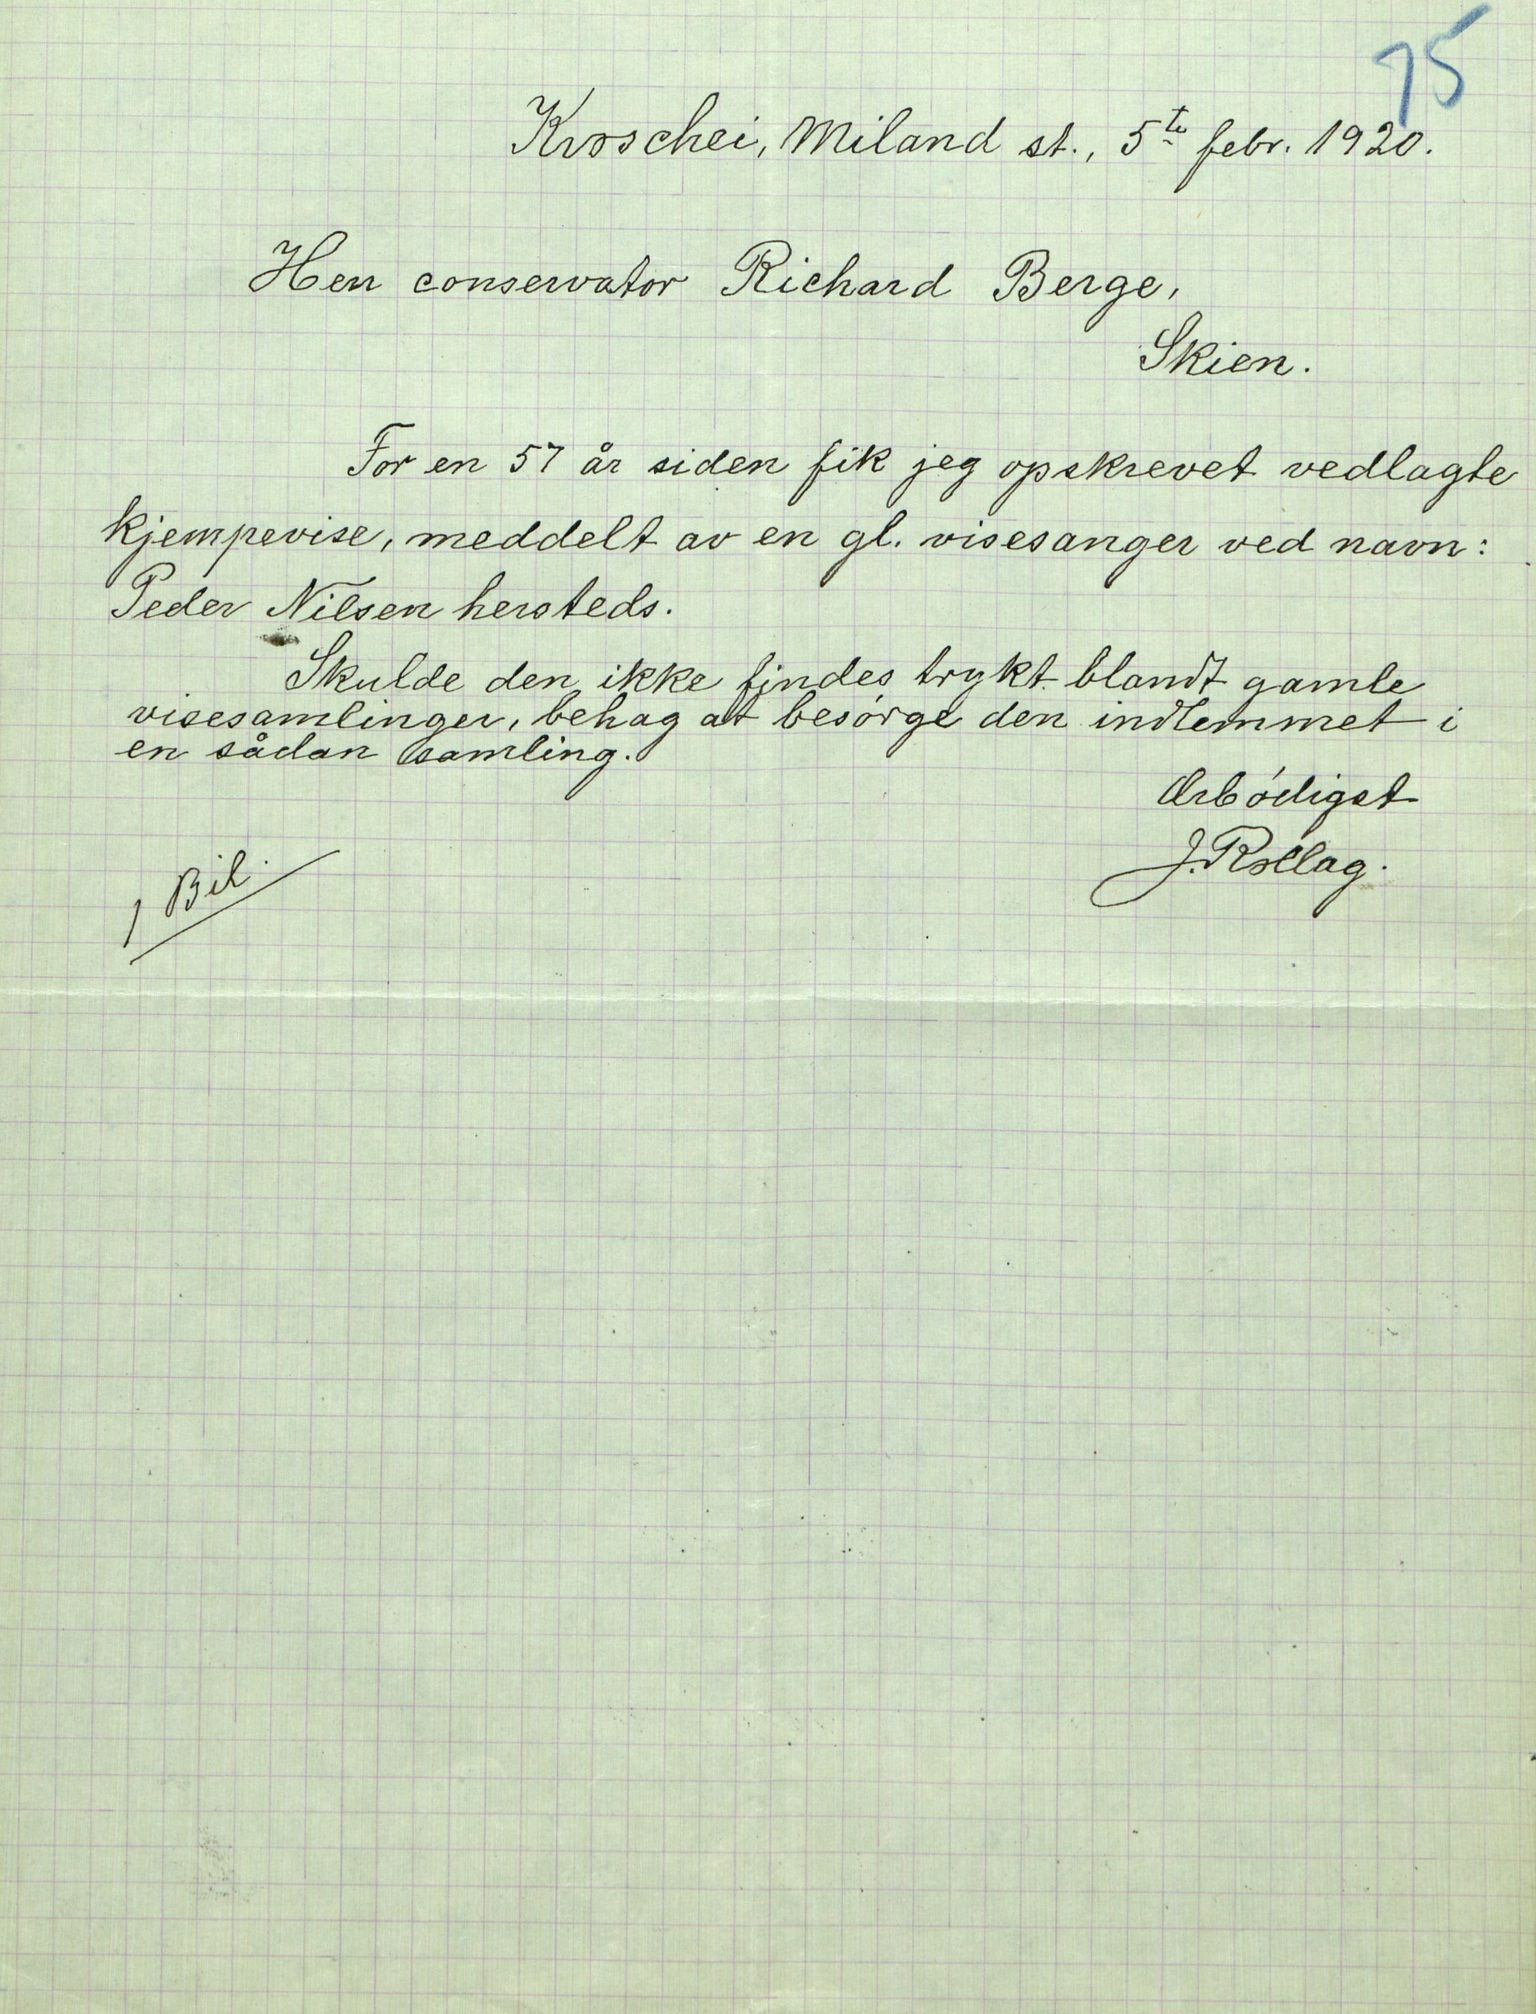 75
Kroschei, Miland st., 5te febr. 1920.
Herr conservator Richard Berge,
Skien.
For en 57 år siden fik jeg opskrevet vedlagte
kjempevise, meddelt av en gl. visesanger ved navn:
Peder Nilsen hersteds.
Skulde den ikke findes trykt blandt gamle
visesamlinger, behag at besórge den indlemmet i
en sådan samling.
Ærbódigst
J. Rollag.
1 Bil.